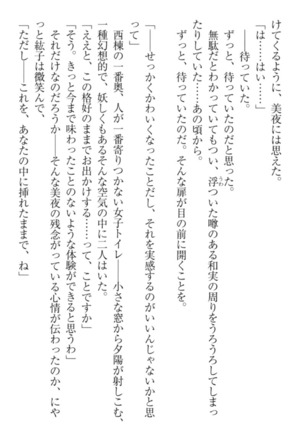 けてくるように、美夜には思えた。
「は……はい……」
――待っていた。
ずっと、待っていたのだと思った。
無駄だとわかっていてもつい、浮ついた噂のある和実の周りをうろうろしてしまっ
たりしていた――あの頃から。
ずっと、待っていたのだ。そんな扉が目の前に開くことを。

「――せっかくかわいくなったことだし、それを実感するのがいいんじゃないかと思
って」
西棟の一番奥、人が一番寄りつかない女子トイレ――小さな窓から夕陽が射しこむ、
一種幻想的で、妖しくもあるそんな空気の中に二人はいた。
「ええと、この格好のままでお出かけする……って、ことですか」
「そう。きっと今まで味わったことのないような体験ができると思うわ」
それだけなのだろうか――そんな美夜の残念がっている心情が伝わったのか、にや
っと紘子は微笑んで、
「ただし――これを、あなたの中に挿れたままで、ね」